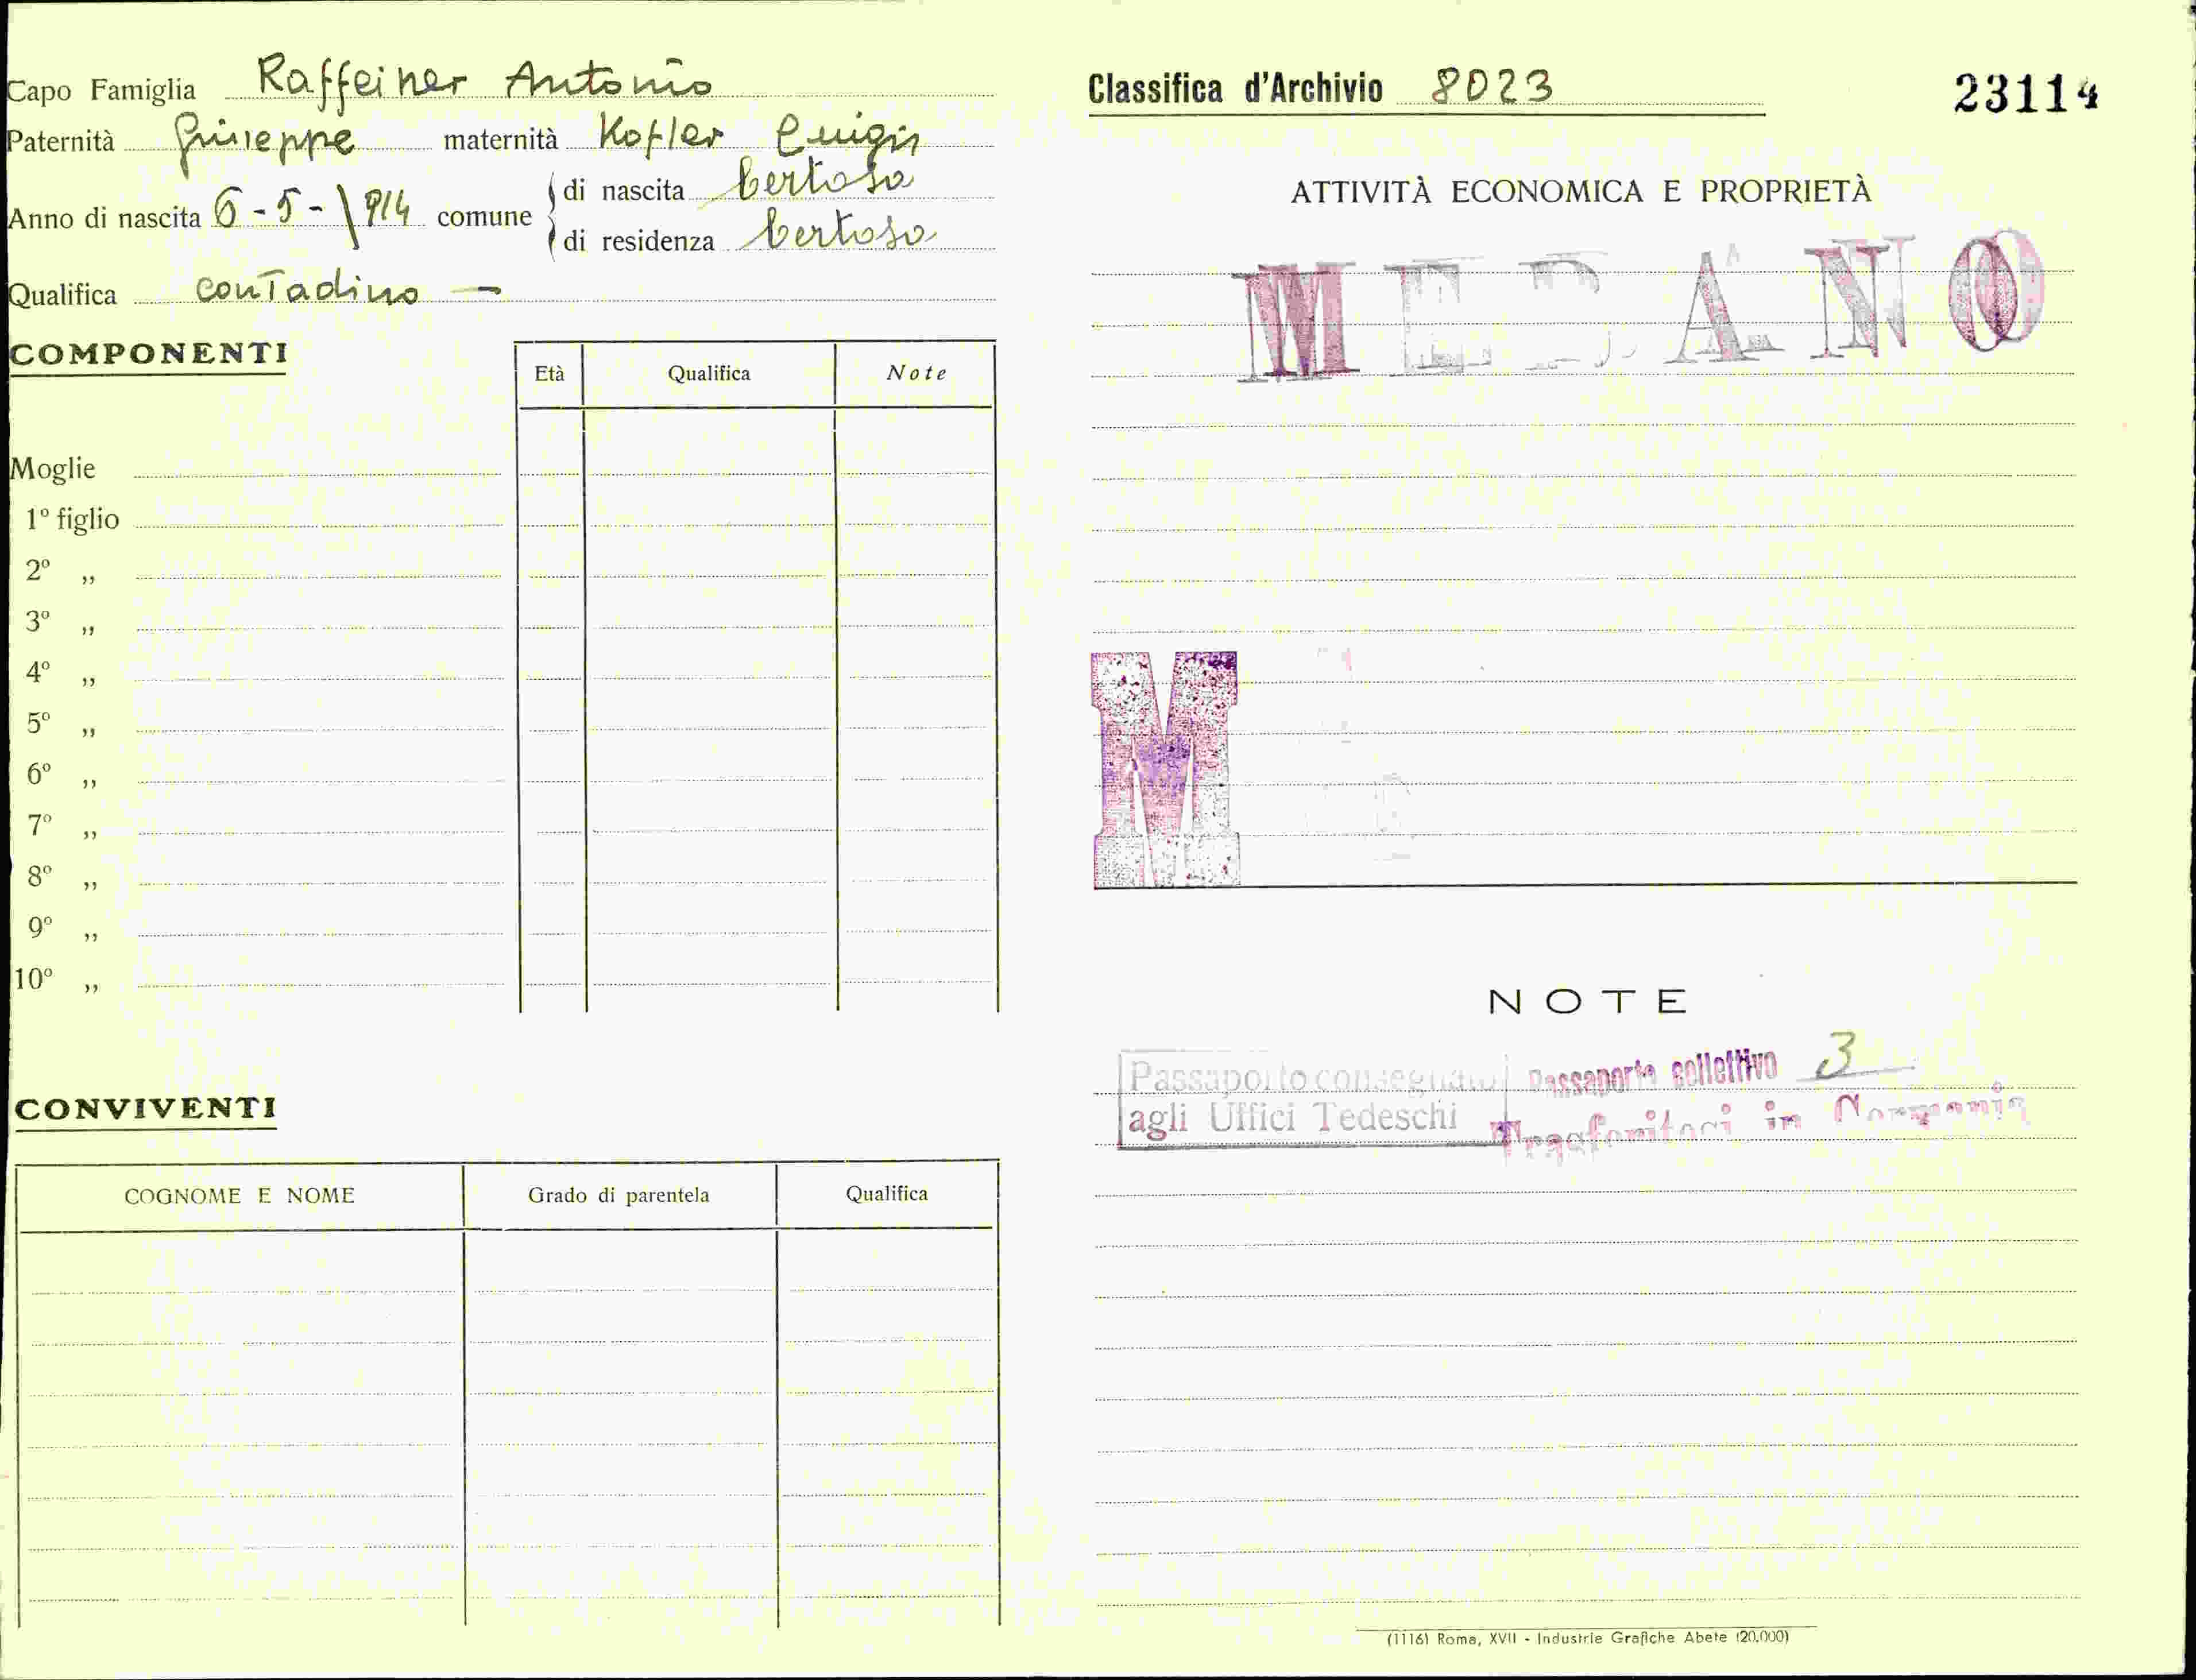 Capo Famiglia Raffeiner Antonio
Paternità Giuseppe maternità Kofler Luigia
Anno di nascita 6-5-1914 comune di nascita Certosa
di residenza Certosa
Qualifica contadino —
COMPONENTI
Età Qualifica Note
Moglie
1º figlio
2º ,,
3º ,,
4º ,,
5º ,,
6º ,,
7º ,,
8º ,,
9º ,,
10º ,,
CONVIVENTI
COGNOME E NOME Grado di parentela Qualifica
Classifica d'Archivio 8023
23114
ATTIVITÀ ECONOMICA E PROPRIETÀ
MERANO
M
NOTE
Passaporto consegnato
agli Uffici Tedeschi
Passaporto collettivo 3
Trasferitosi in Germania
(1116) Roma, XVII - Industrie Grafiche Abete (20.000)